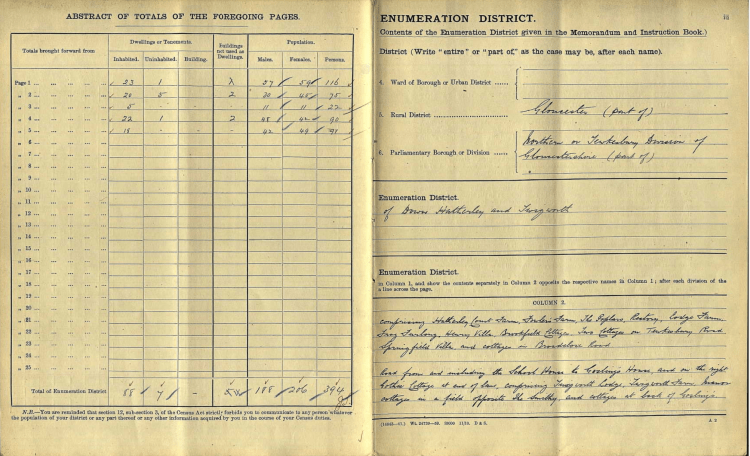 ABSTRACT OF TOTALS OF THE FOREGOING PAGES.
Totals brought forward from
Dwellings or Tenements.
Buildings not used as Dwellings.
Population.
Inhabited. Uninhabited. Building. Males. Females. Persons.
Page 1 ... 23 1 2 57 59 116
„ 2 ... 20 5 2 30 45 75
„ 3 ... 5 - - 11 11 22
„ 4 ... 22 1 2 48 42 90
„ 5 ... 18 - - 42 49 91
„ 6 ...
„ 7 ...
„ 8 ...
„ 9 ...
„ 10 ...
„ 11 ...
„ 12 ...
„ 13 ...
„ 14 ...
„ 15 ...
„ 16 ...
„ 17 ...
„ 18 ...
„ 19 ...
„ 20 ...
„ 21 ...
„ 22 ...
„ 23 ...
„ 24 ...
„ 25 ...
Total of Enumeration District 88 7 - 188 206 394
N.B.—You are reminded that section 12, sub-section 2, of the Census Act strictly forbids you to communicate to any person whatever
the population of your district or any part thereof or any other information acquired by you in the course of your Census duties.
15
ENUMERATION DISTRICT.
Contents of the Enumeration District given in the Memorandum and Instruction Book.)
District (Write "entire" or "part of," as the case may be, after each name).
4. Ward of Borough or Urban District ......
5. Rural District ...... Gloucester (part of)
6. Parliamentary Borough or Division ...... Northern or Tewkesbury Division of
Gloucestershire (part of)
Enumeration District.
of Down Hatherley and Twigworth
Enumeration District.
in Column 1, and show the contents separately in Column 2 opposite the respective names in Column 1; after each division of the
a line across the page.
COLUMN 2.
comprising Hatherley Court Farm, Farm The Poplars, Rectory, Lodge Farm
Frog Furlong, Henry Villa Brookfield Cottages, Two Cottages on Tewkesbury Road
Springfield Villa, and cottages on Road
Road from and including the School House to House, and on the right
Cottage at end of lane, comprising Twigworth Lodge, Twigworth Farm Manor
cottages in a field opposite the Smithy, and cottages at back of
A 2